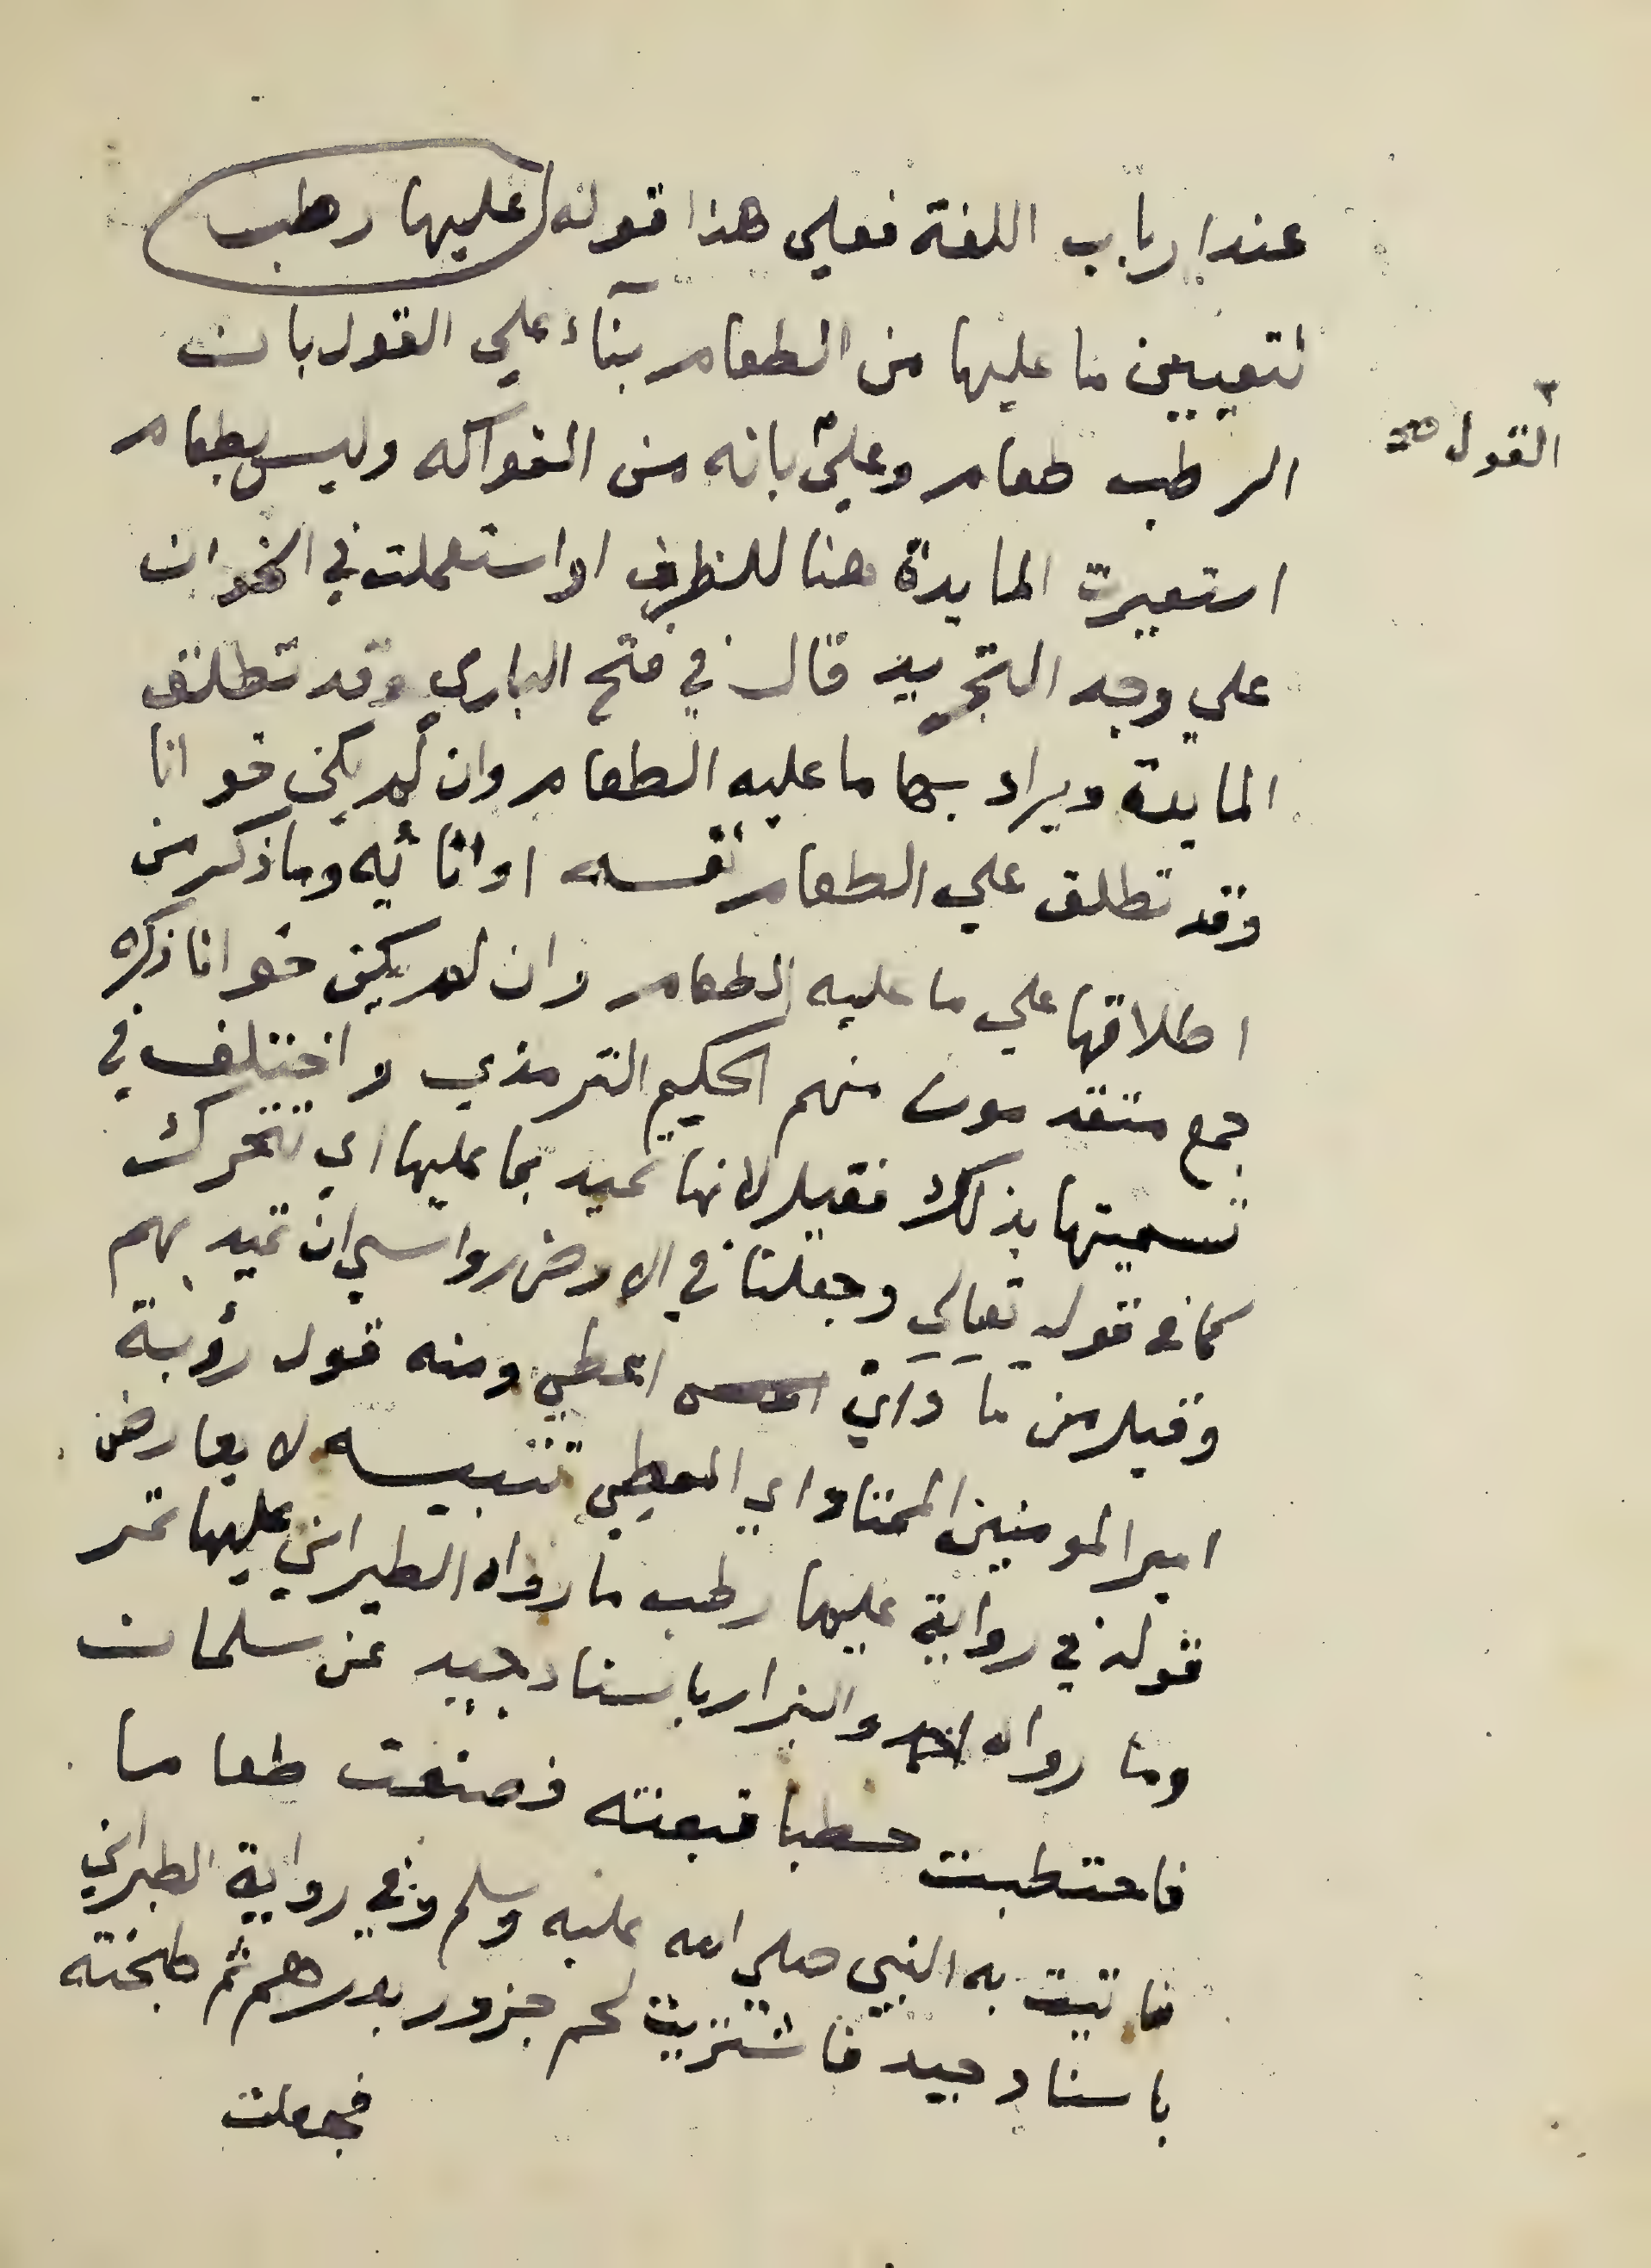 عند ارباب اللغة فعلي هذا قوله عليها رطب
لتعيين ما عليها من الطعام بنآء علي القول بان
الرطب طعام وعلي بانه من الفواكه وليس بطعام
القول صح
استعيرت المايدة هنا للظرف او استعملت في الخوان
علي وجه التجريد قال في فتح الباري وقد تطلق
المايدة ويراد بها ما عليه الطعام وان لم يكن خوانا
وقد تطلق علي الطعام نفسه او انائه وما ذكر من
اطلاقها علي ما عليه الطعام وان لم يكن خوانا ذكره
جمع متقدمون منهم الحكيم الترمذي واختلف في
تسميتها بذلك فقيل لانها تميد بما عليها اي تتحرك
كما في قوله تعالي وجعلنا في الارض رواسي ان تميد بهم
وقيل من ماد اي اعطي ومنه قول رؤبة
امير المومنين الممتاد اي المعطي تنبيه لا يعارض
قوله في رواية عليها رطب ما رواه الطبراني عليها تمر
وما رواه احمد والبزار باسناد جيد عن سلمان
فاحتطبت حطبا فبعته فصنعت طعاما
فاتيت به النبي صلي الله عليه وسلم وفي رواية الطبراني
باسناد جيد فاشتريت لحم جزور بدرهم ثم طبخته
فجعلت